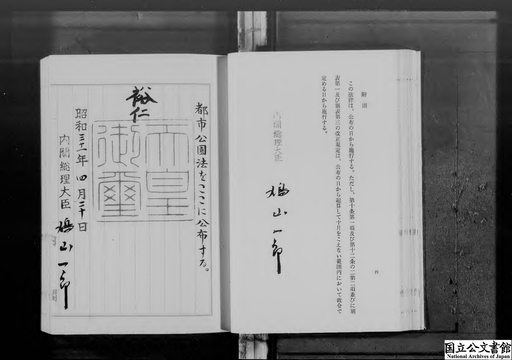 都市公園法をここに公布する。
裕仁
天皇
御璽
昭和三十一年四月二十日
内閣総理大臣 鳩山一郎
附則
この法律は、公布の日から施行する。ただし、第十条第一項及び第十二条の二第二項並びに別
表第一及び別表第三の改正規定は、公布の日から起算して十月をこえない範囲内において政令で
定める日から施行する。
内閣総理大臣
鳩山一郎
国立公文書館
National Archives of Japan